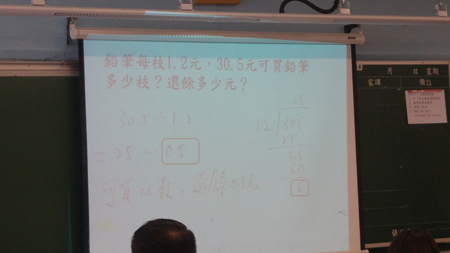 鉛筆每枝1.2元，30.5元可買鉛筆
多少枝？還餘多少元？
30.5÷1.2
=25…0.5
可買25枝，還餘0.5元
25
12
305
24
65
60
5
月 日 星期
家課 備註